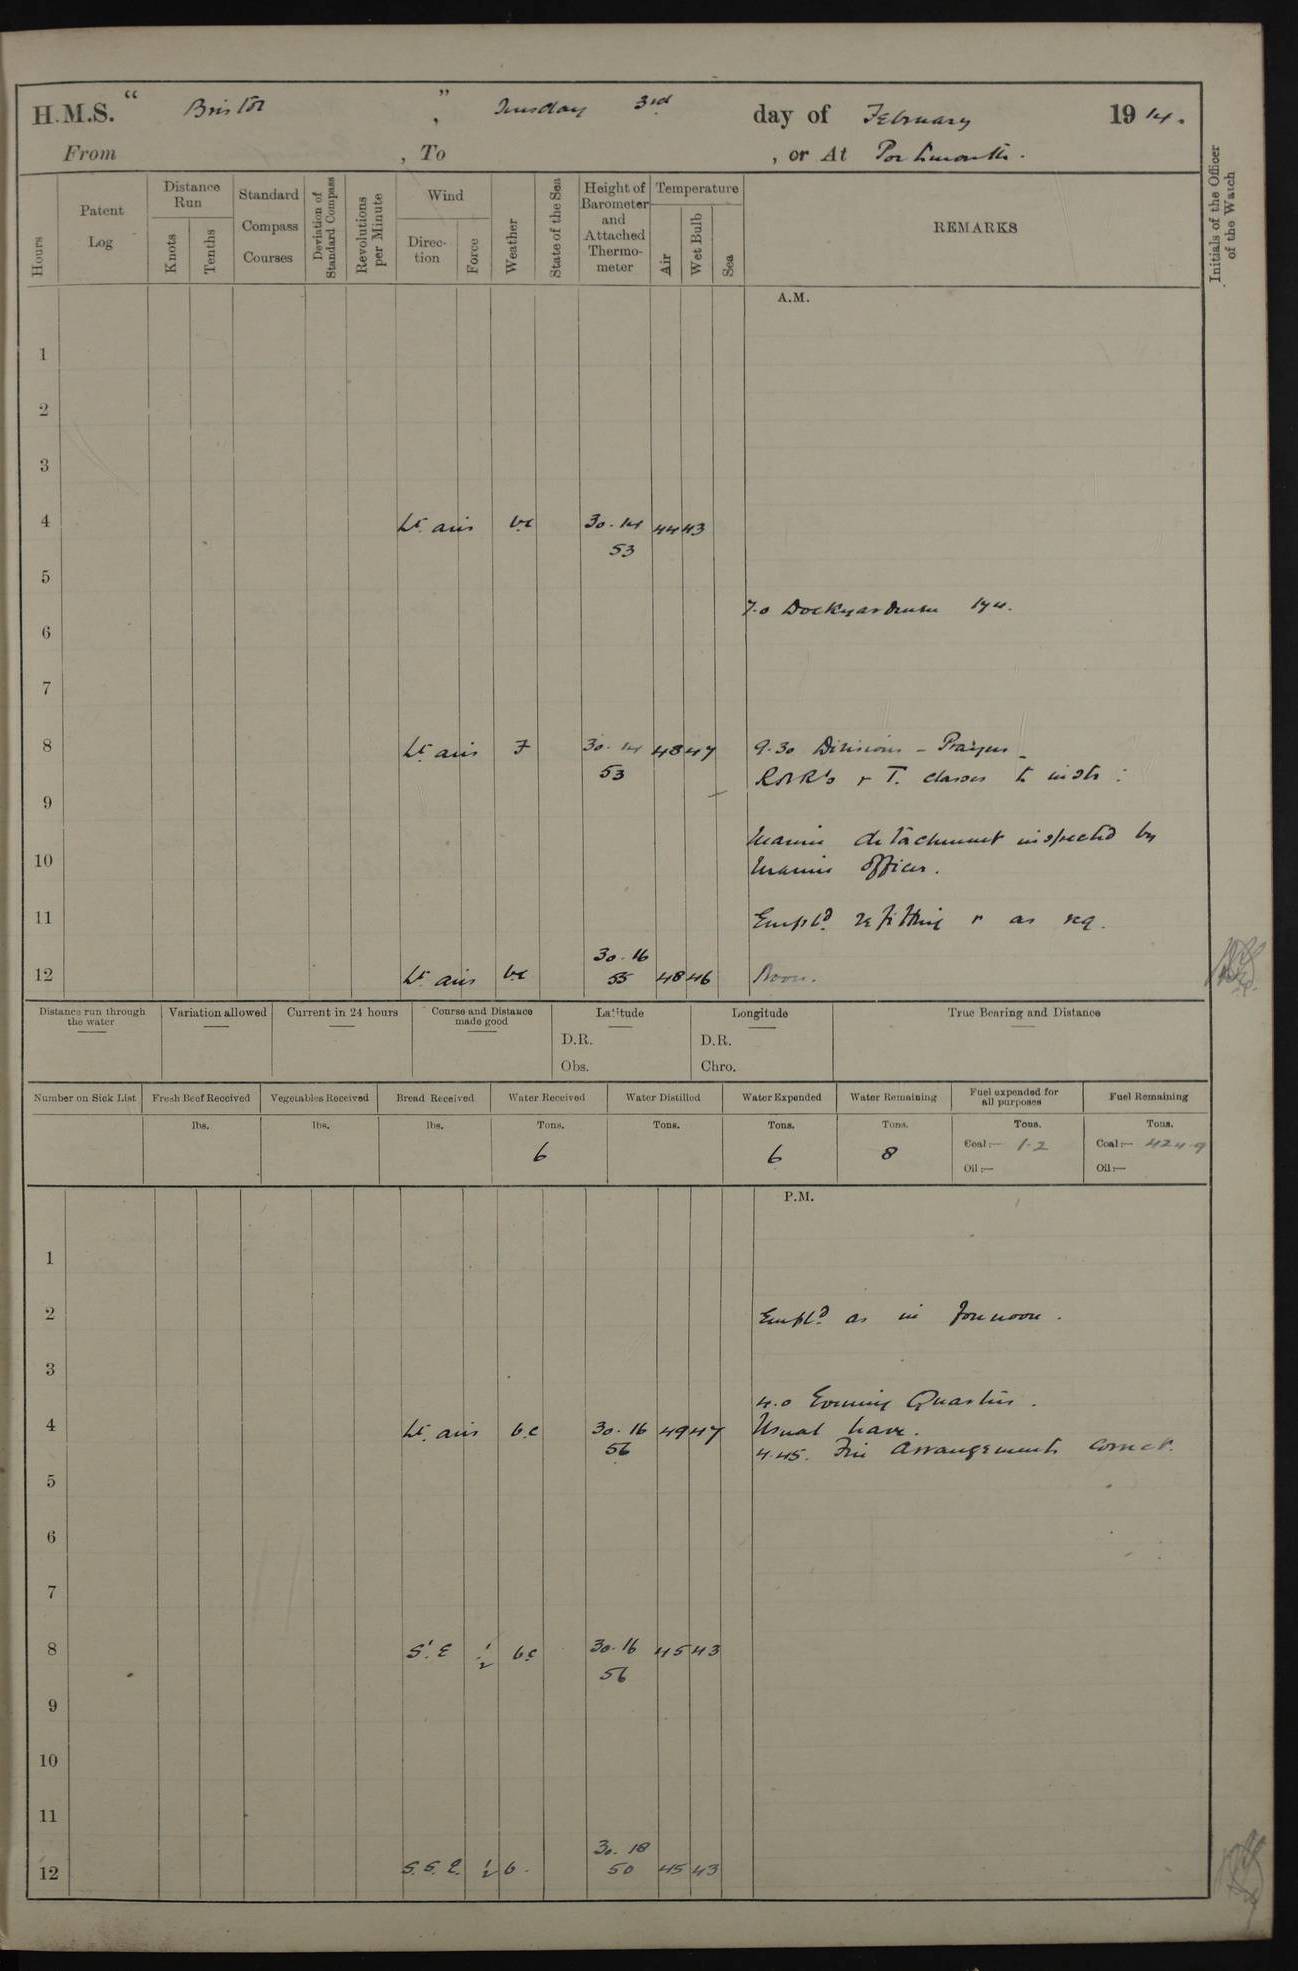 H.M.S. “ Bristol ” , Tuesday 3rd day of February 1914.
From , To , or At Portsmouth.
Hours
Patent Log
Distance Run
Knots
Tenths
Standard Compass Courses
Deviation of Standard Compass
Revolutions per Minute
Wind
Direc-tion
Force
Weather
State of the Sea
Height of Barometer and Attached Thermo-meter
Temperature
Air
Wet Bulb
Sea
REMARKS
Initials of the Officer of the Watch
A.M.
1
2
3
4 Lt airs bc 30.14 44 43
53
5
7.0 Dockyardmen
6
7
8 Lt airs F 30.14 48 47 9.30 Divisions – Prayers
53 & T. classes to instr:
9
Marine detachment inspected by
10 Marine Officer.
11 Empld refitting & as req.
30.16
12 Lt airs bc 55 48 46 Noon.
Distance run through the water
Variation allowed
Current in 24 hours
Course and Distance made good
Latitude
D.R.
Obs.
Longitude
D.R.
Chro.
True Bearing and Distance
Number on Sick List
Fresh Beef Received
lbs.
Vegetables Received
lbs.
Bread Received
lbs.
Water Received
Tons.
6
Water Distilled
Tons.
Water Expended
Tons.
6
Water Remaining
Tons.
8
Fuel expended for all purposes
Tons.
Coal:— 1.2
Oil:—
Fuel Remaining
Tons.
Coal:— 424.9
Oil:—
P.M.
1
2 Empld as in forenoon.
3
4.0 Evening Quarters.
4 Lt. airs b.c 30.16 49 47 Usual leave.
56 4.45. Fire arrangements correct.
5
6
7
8 S'.E 1/2 bc 30.16 45 43
56
9
10
11
30.18
12 S.S.E. 1/2 b. 50 45 43